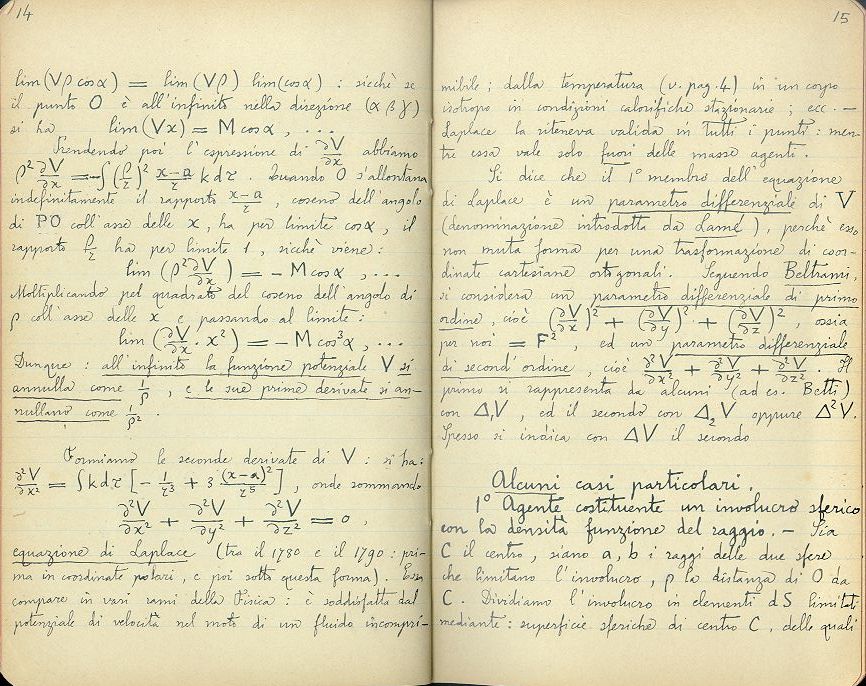 14
lim (Vρ cos α) = lim (Vρ) lim (cos α) : sicchè se
il punto O è all'infinito nella direzione (α β γ)
si ha lim (Vx) = M cos α , ...
Prendendo poi l'espressione di ∂V/∂x abbiamo
ρ² ∂V/∂x = -∫(ρ/r)² (x-a)/r k dτ . Quando O s'allontana
indefinitamente il rapporto (x-a)/r , coseno dell'angolo
di PO coll'asse delle x, ha per limite cos α, il
rapporto ρ/r ha per limite 1, sicchè viene:
lim (ρ² ∂V/∂x) = - M cos α , ...
Moltiplicando pel quadrato del coseno dell'angolo di
ρ coll'asse delle x e passando al limite:
lim (∂V/∂x · x²) = - M cos³ α , ...
Dunque : all'infinito la funzione potenziale V si
annulla come 1/ρ , e le sue prime derivate si an-
nullano come 1/ρ² .
Formiamo le seconde derivate di V : si ha:
∂²V/∂x² = ∫ k dτ [ - 1/r³ + 3 (x-a)²/r⁵ ] , onde sommando
∂²V/∂x² + ∂²V/∂y² + ∂²V/∂z² = 0 ,
equazione di Laplace (tra il 1780 e il 1790: pri-
ma in coordinate polari, e poi sotto questa forma). Essa
compare in vari rami della Fisica : è soddisfatta dal
potenziale di velocità nel moto di un fluido incompri-
15
mibile; dalla temperatura (v. pag. 4) in un corpo
isotropo in condizioni calorifiche stazionarie ; ecc. —
Laplace la riteneva valida in tutti i punti : men-
tre essa vale solo fuori delle masse agenti.
Si dice che il 1° membro dell'equazione
di Laplace è un parametro differenziale di V
(denominazione introdotta da Lamé), perchè esso
non muta forma per una trasformazione di coor-
dinate cartesiane ortogonali. Seguendo Beltrami,
si considera un parametro differenziale di primo
ordine, cioè (∂V/∂x)² + (∂V/∂y)² + (∂V/∂z)² , ossia
per noi = F² , ed un parametro differenziale
di second'ordine, cioè ∂²V/∂x² + ∂²V/∂y² + ∂²V/∂z² . Il
primo si rappresenta da alcuni (ad es. Betti)
con Δ₁V , ed il secondo con Δ₂V oppure Δ²V.
Spesso si indica con ΔV il secondo
Alcuni casi particolari.
1° Agente costituente un involucro sferico
con la densità funzione del raggio. — Sia
C il centro, siano a, b i raggi delle due sfere
che limitano l'involucro, ρ la distanza di O da
C. Dividiamo l'involucro in elementi dS limitati
mediante: superficie sferiche di centro C, delle quali